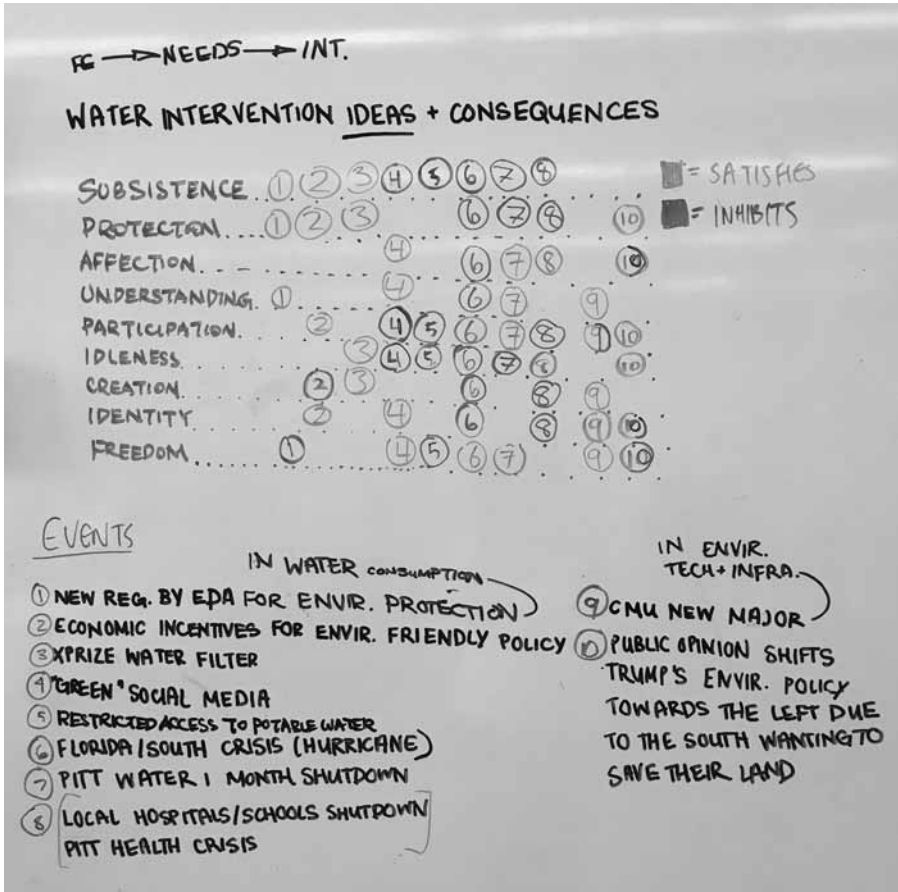 FC → NEEDS → INT.
WATER INTERVENTION IDEAS + CONSEQUENCES
SUBSISTENCE ① ② ③ ④ ⑤ ⑥ ⑦ ⑧
= SATISFIES
PROTECTION.... ① ② ③ ⑥ ⑦ ⑧ ⑩
= INHIBITS
AFFECTION. ④ ⑥ ⑦ ⑧ ⑩
UNDERSTANDING. ① ④ ⑥ ⑦ ⑨
PARTICIPATION. ② ④ ⑤ ⑥ ⑦ ⑧ ⑨ ⑩
IDLENESS. ③ ④ ⑤ ⑥ ⑦ ⑧ ⑩
CREATION. ② ③ ⑥ ⑧ ⑨
IDENTITY ② ④ ⑥ ⑧ ⑨ ⑩
FREEDOM.... ① ④ ⑤ ⑥ ⑦ ⑨ ⑩
EVENTS
IN WATER CONSUMPTION
① NEW REG. BY EPA FOR ENVIR. PROTECTION
② ECONOMIC INCENTIVES FOR ENVIR. FRIENDLY POLICY
③ XPRIZE WATER FILTER
④ "GREEN" SOCIAL MEDIA
⑤ RESTRICTED ACCESS TO POTABLE WATER
⑥ FLORIDA/SOUTH CRISIS (HURRICANE)
⑦ PITT WATER 1 MONTH SHUTDOWN
⑧ LOCAL HOSPITALS/SCHOOLS SHUTDOWN
PITT HEALTH CRISIS
IN ENVIR.
TECH + INFRA.
⑨ CMU NEW MAJOR
⑩ PUBLIC OPINION SHIFTS
TRUMP'S ENVIR. POLICY
TOWARDS THE LEFT DUE
TO THE SOUTH WANTING TO
SAVE THEIR LAND